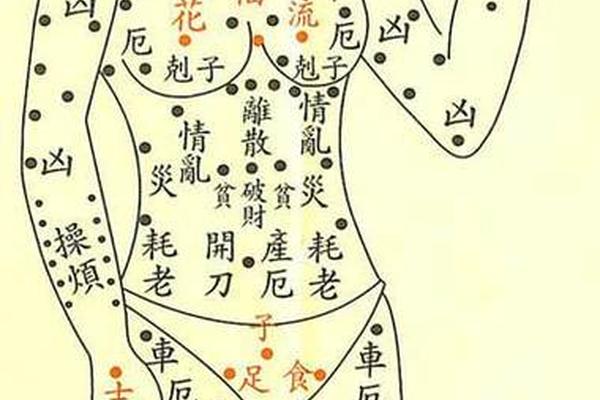 凶
花
流
厄
厄
凶
剋子
剋子
凶
離散
情亂
情亂
凶
災
災
貧
破財
貧
操煩
耗老
開刀
產厄
耗老
子
車厄
足
食
車厄